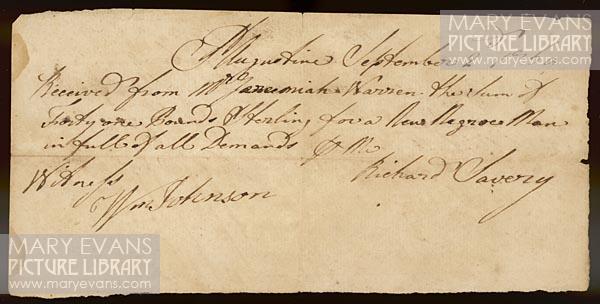 MARY EVANS
PICTURE LIBRARY
www.maryevans.com
St Augustine September
Received from Mr Jeremiah Warren the Sum of
Forty one Pounds Sterling for a New Negroe Man
in full of all Demands Pr Me
Witness
Richard Savery
Wm Johnson
MARY EVANS
PICTURE LIBRARY
www.maryevans.com